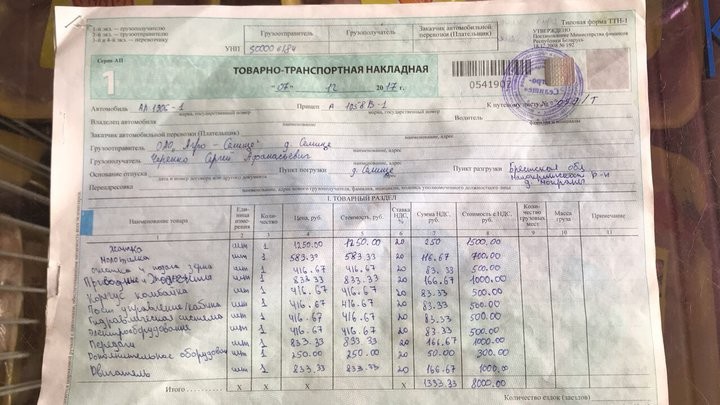 1-й экз. — грузополучателю
2-й экз. — грузоотправителю
3-й и 4-й экз. — перевозчику
Грузоотправитель Грузополучатель Заказчик автомобильной перевозки (Плательщик)
УНП
Типовая форма ТТН-1
УТВЕРЖДЕНО
Постановление Министерства финансов
Республики Беларусь
18.12.2008 № 192
Серия АП
1
ТОВАРНО-ТРАНСПОРТНАЯ НАКЛАДНАЯ
07 12 2017 г.
054190
Автомобиль Прицеп А К путевому листу №
марка, государственный номер марка, государственный номер
Владелец автомобиля Водитель
Заказчик автомобильной перевозки (Плательщик)
наименование, адрес
Грузоотправитель ОАО „Агро - Селище" д. Селище
наименование, адрес
Грузополучатель Сергей Афанасьевич
наименование, адрес
Основание отпуска Пункт погрузки д. Селище Пункт разгрузки Брестская обл
дата и номер договора или другого документа адрес
Переадресовка
наименование, адрес нового грузополучателя, фамилия, инициалы, подпись уполномоченного должностного лица
I. ТОВАРНЫЙ РАЗДЕЛ
Наименование товара Единица измерения Количество Цена, руб. Стоимость, руб. Ставка НДС, % Сумма НДС, руб. Стоимость с НДС, руб. Количество грузовых мест Масса груза Примечание
1 2 3 4 5 6 7 8 9 10 11
Жатка шт 1 1250.00 1250.00 20 250 1500.00
Молотилка шт 1 583.33 583.33 20 116.67 700.00
шт 1 416.67 416.67 20 83.33 500.00
шт 1 833.33 833.33 20 166.67 1000.00
Корпус комбайна шт 1 416.67 416.67 20 83.33 500.00
Пост управления/кабина шт 1 416.67 416.67 20 83.33 500.00
Гидравлическая система шт 1 416.67 416.67 20 83.33 500.00
Электрооборудование шт 1 416.67 416.67 20 83.33 500.00
Передачи шт 1 833.33 833.33 20 166.67 1000.00
Дополнительное оборудов шт 1 250.00 250.00 20 50.00 300.00
Двигатель шт 1 833.33 833.33 20 166.67 1000.00
Итого X X X 1333.33 8000.00
Количество ездок (заездов)